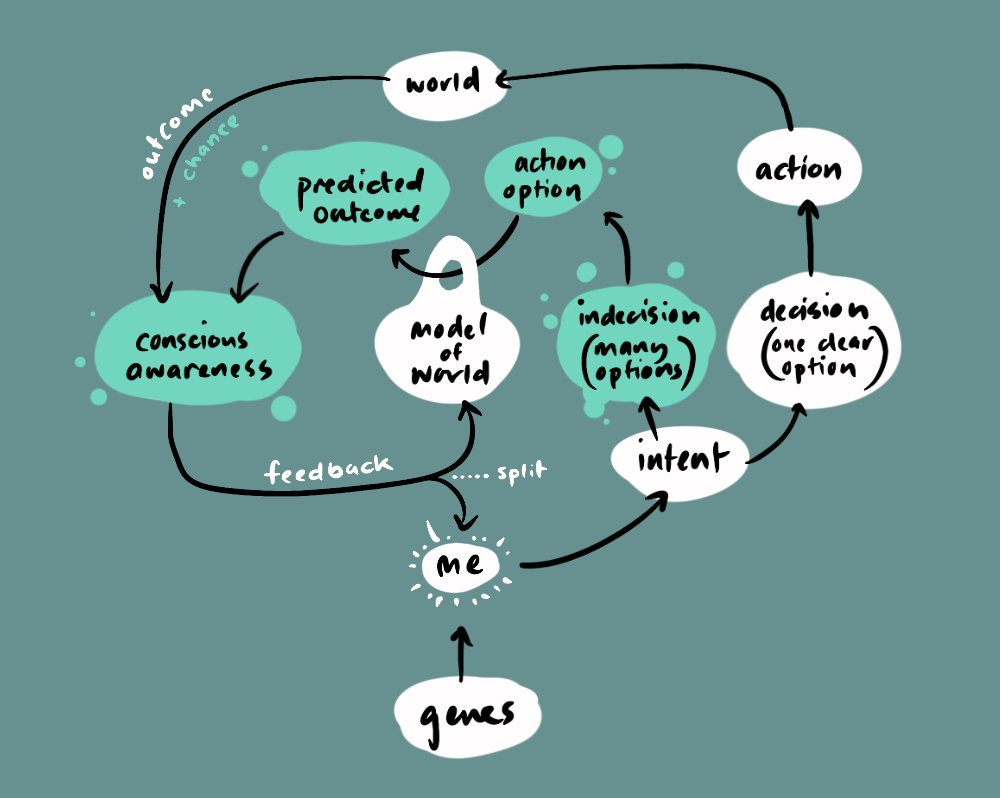 world
outcome
+ chance
predicted
outcome
action
option
action
conscious
awareness
model
of
world
indecision
(many
options)
decision
(one clear
option)
feedback
..... split
intent
me
genes